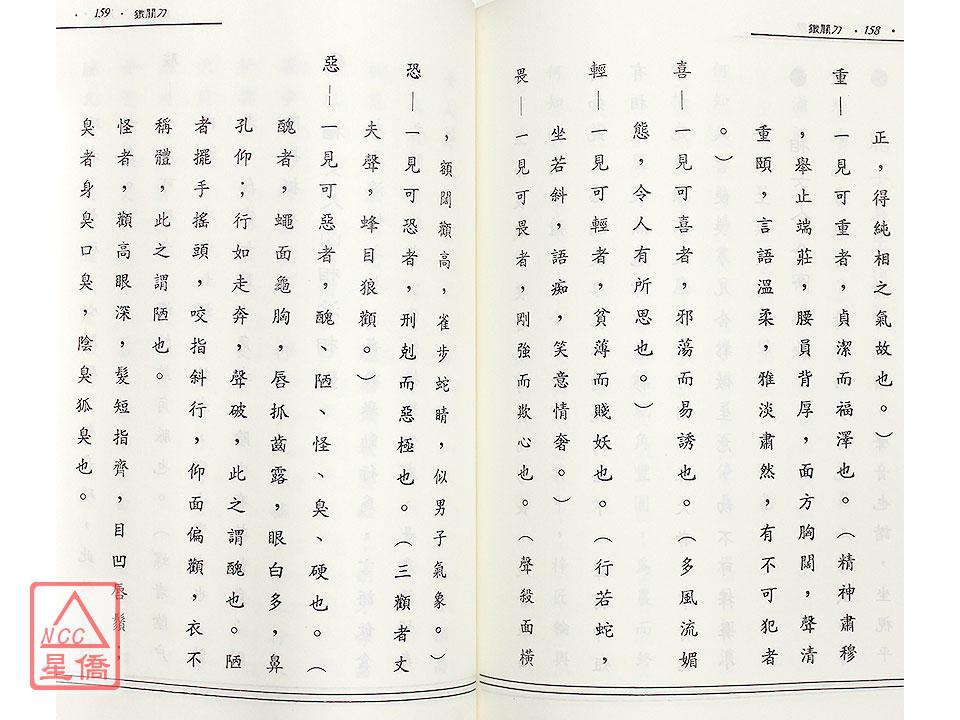 鐵關刀 ・158・
正，得純相之氣故也。）
重｜一見可重者，貞潔而福澤也。（精神肅穆
，舉止端莊，腰員背厚，面方胸闊，聲清
重頤，言語溫柔，雅淡肅然，有不可犯者
。）
喜｜一見可喜者，邪蕩而易誘也。（多風流媚
態，令人有所思也。）
輕｜一見可輕者，貧薄而賤妖也。（行若蛇，
坐若斜，語痴，笑意情奢。）
畏｜一見可畏者，剛強而欺心也。（聲殺面橫
・159・鐵關刀
，額闊顴高，雀步蛇睛，似男子氣象。）
恐｜一見可恐者，刑剋而惡極也。（三顴者丈
夫聲，蜂目狼顴。）
惡｜一見可惡者，醜、陋、怪、臭、硬也。（
醜者，蠅面龜胸，唇抓齒露，眼白多，鼻
孔仰；行如走奔，聲破，此之謂醜也。陋
者擺手搖頭，咬指斜行，仰面偏顴，衣不
稱體，此之謂陋也。
怪者，顴高眼深，髮短指齊，目凹唇鬚；
臭者身臭口臭，陰臭狐臭也。
NCC
星僑